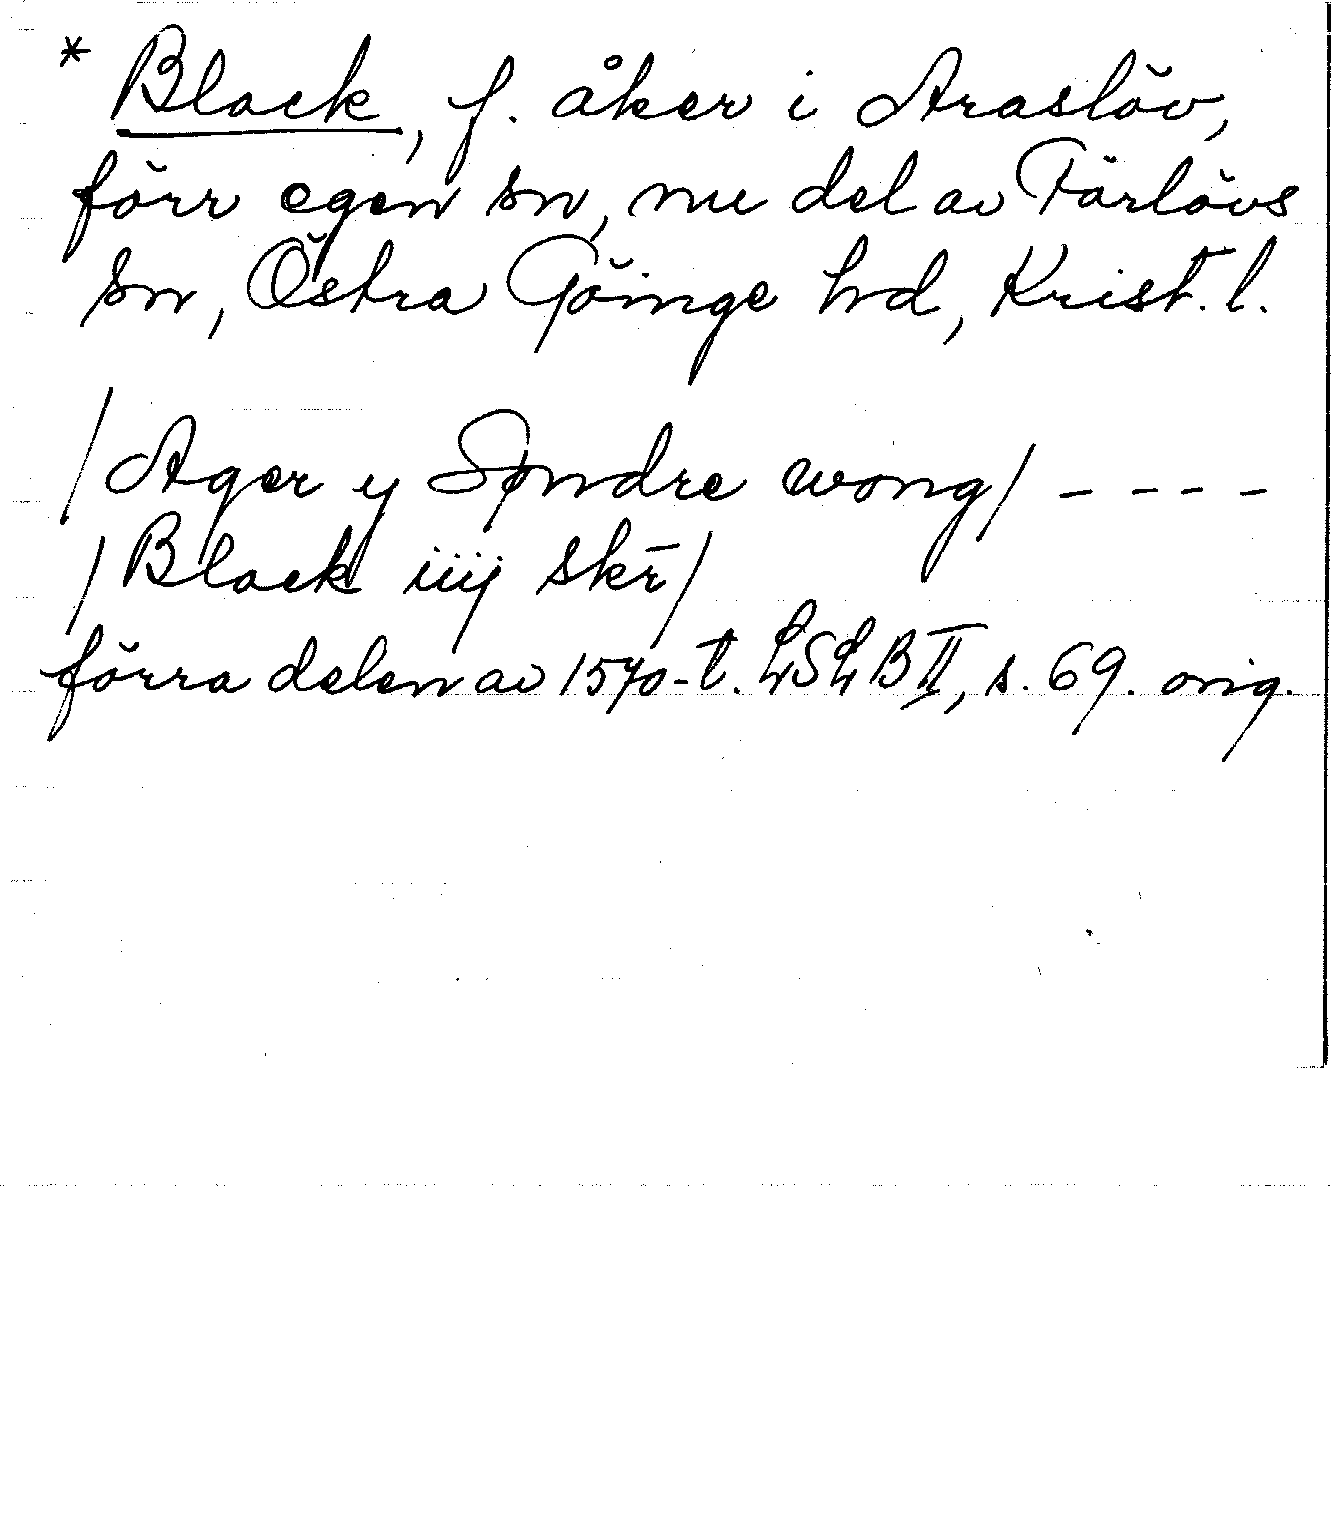 * Black, f. åker i Araslöv,
förr egen sn, nu del av Färlövs
sn, Östra Göinge hd, Krist. l.
/Ager y Søndre wong/ - - - -
/Black iiij skr̄/
förra delen av 1570-t. LSLB II, s. 69. orig.